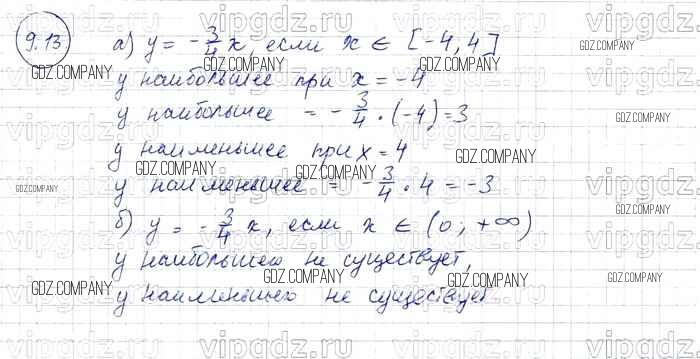 9.13 а) y = -3/4 x, если x ∈ [-4, 4]
y наибольшее при x = -4
y наибольшее = -3/4 · (-4) = 3
y наименьшее при x = 4
y наименьшее = -3/4 · 4 = -3
б) y = -3/4 x, если x ∈ (0; +∞)
y наибольшего не существует,
y наименьшего не существует
vipgdz.ru
GDZ.COMPANY